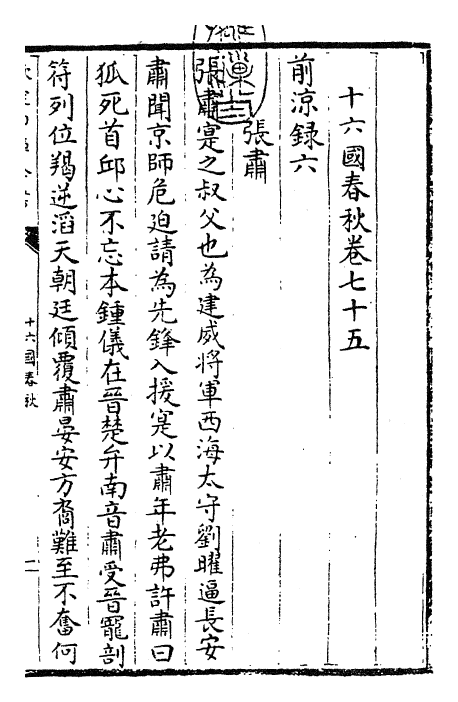 十六國春秋卷七十五
前涼録六
張肅
張肅寔之叔父也為建威將軍西海太守劉曜逼長安
肅聞京師危迫請為先鋒入援寔以肅年老弗許肅曰
狐死首邱心不忘本鍾儀在晉楚弁南音肅受晉寵剖
符列位羯逆滔天朝廷傾覆肅晏安方裔難至不奮何
十六國春秋